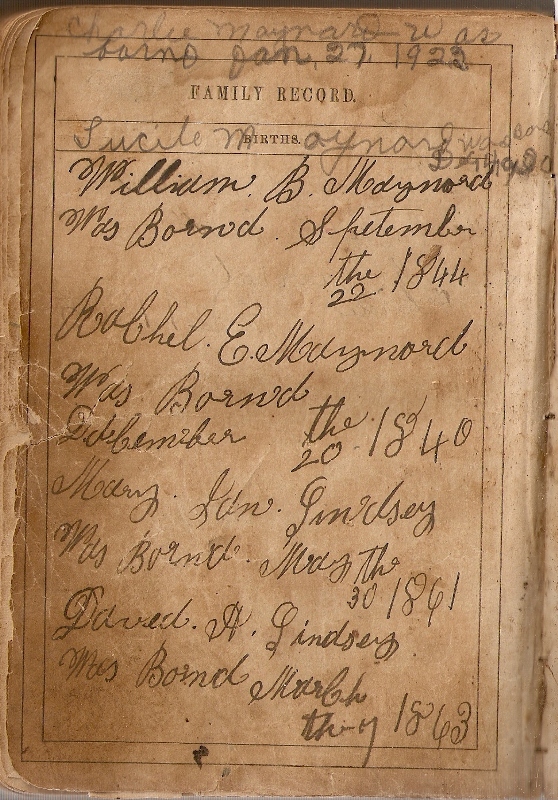 Charlie Maynard was
bornd Jan, 27, 1922
FAMILY RECORD.
BIRTHS.
Lucile Maynard was Born
William. B. Maynord
Was Bornd. Spetember
the 22 1844
Rachel. E. Maynord
Was Bornd
Ddecember the 20 1840
Mary. Jan. Lindsey
Was Bornd. May the
30 1861
David. A. Lindsey
Was Bornd March
the 7 1863